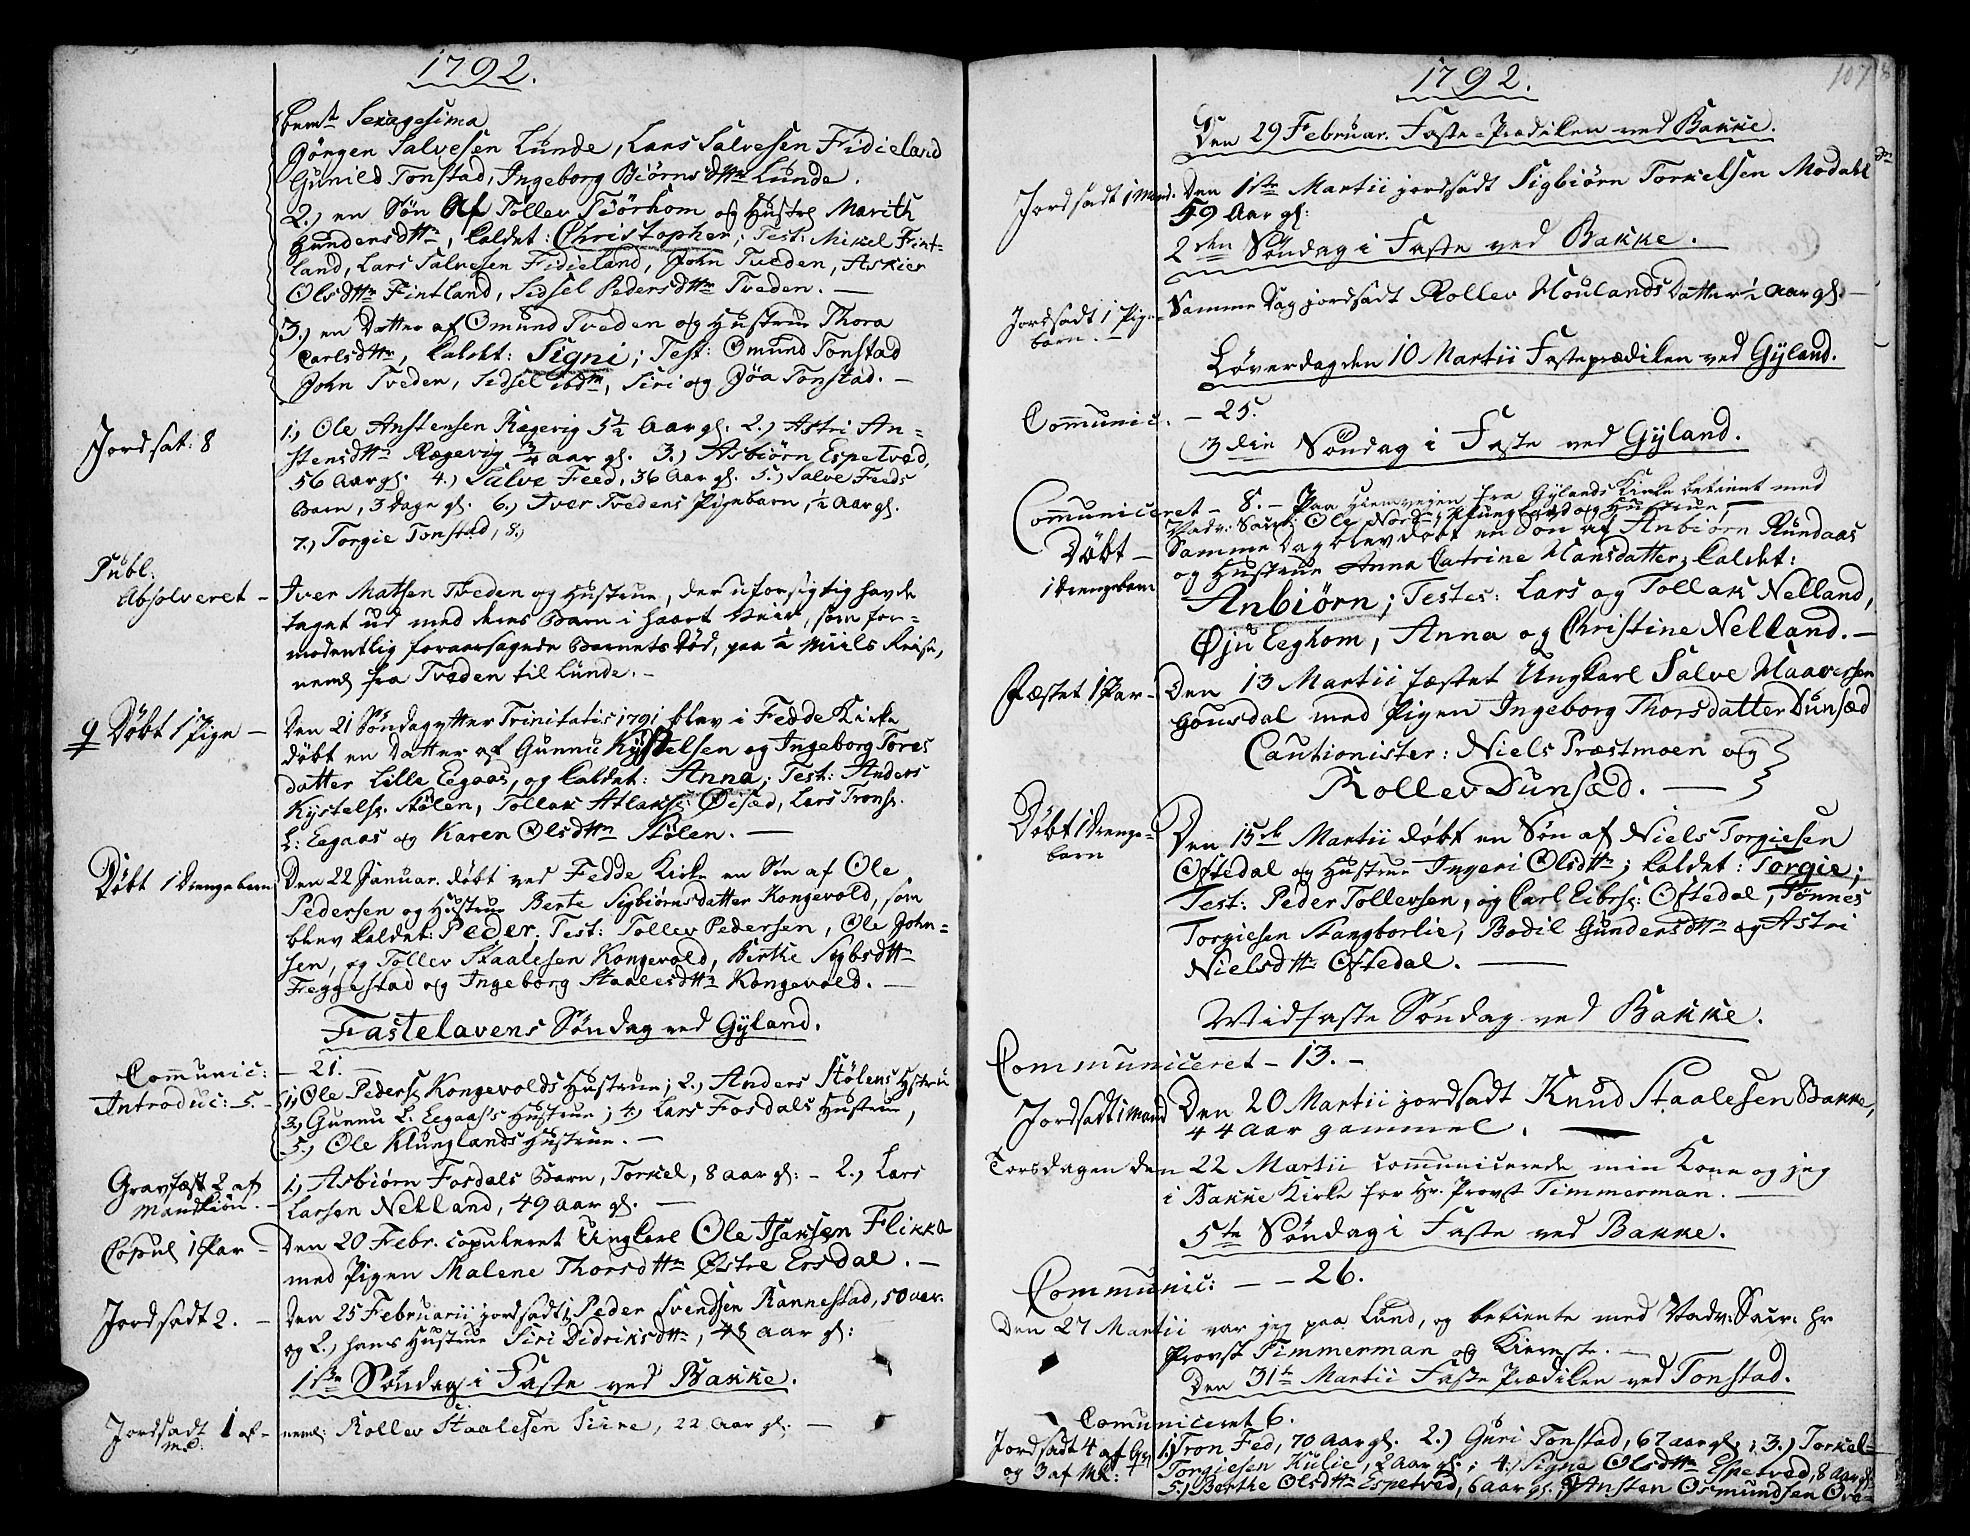 1792.
bemt Sexagesima
Jörgen Salvesen Lunde, Lars Salvesen Fidieland
Gunild Tonstad, Ingeborg Biörnsdttr Lunde.
2.) en Søn af Tollev Tiörhom og Hustru Marith
Gundersdttr, kaldet: Christopher; Test: Mikel Fint-
land, Lars Salvesen Fidieland, John Tveden, Askier
Olsdttr Fintland, Sidsel Pedersdttr Tveden. —
3.) en Datter af Omund Tveden og Hustrue Thora
Carlsdttr, kaldet: Signi; Test: Omund Tonstad
John Tveden, Sidsel ibdm, Siri og Jöa Tonstad. —
Jordsat: 8
1.) Ole Anstensen Rægevig 5½ Aar gl. 2.) Astri An-
stensdttr Rægevig ¾ aar gl. 3.) Asbiørn Espetved,
56 Aar gl. 4.) Salve Feed, 36 Aar gl. 5.) Salve Feeds
Barn, 3 Dage gl. 6.) Iver Tvedens Pigebarn, ½ Aar gl.
7.) Torgie Tonstad, 8.)
Publ:
Absolveret —
Iver Matsen Tveden og Hustrue, der uforsigtig havde
taget ud med deres Barn i haart Veir, som for-
modentlig foraarsagede Barnets Død, paa ½ Miils Reise,
neml. fra Tveden til Lunde. —
9 Døbt 1 Pige —
Den 21 Søndag efter Trinitatis 1791 blev i Fedde Kirke
døbt en Datter af Gunnu Kystelsen og Ingeborg Tores
datter Lille Eegaas, og kaldet: Anna; Test: Anders
Kystels: Stölen, Tollak Atlaks: Öisæd, Lars Trons:
L: Eegaas og Karen Olsdttr Stølen. —
Døbt 1 Drengebarn
Den 22 Januar. døbt ved Fedde Kirke en Søn af Ole
Pedersen og Hustrue Berte Sigbiørnsdatter Kongevold, som
blev kaldet: Peder; Test: Tollev Pedersen, Ole John-
sen, og Tollev Staalesen Kongevold, Birthe Sigbsdttr
Freggestad og Ingeborg Staalesdttr Kongevold. —
Fastelavens Søndag ved Gyland.
Communic: — 21. —
Introduc: 5. —
1.) Ole Peders: Kongevolds Hustrue; 2.) Anders Stølens Hstrue
3.) Gunnu L. Eegaas's Hustrue; 4.) Lars Fosdals Hustrue,
5.) Ole Klunglands Hustrue. —
Gravfæst 2 af
Mandkiön. —
1.) Asbiørn Fosdals Barn, Torkel, 8 aar gl: — 2.) Lars
Larsen Nelland, 49 aar gl. —
Copul 1 Par —
Den 20 Febr. copuleret Ungkarl Ole Isaksen Flikka
med Pigen Malene Thorsdttr Østre Ersdal. —
Jordsadt 2. —
Den 25 Februarii jordsadt 1. Peder Svendsen Rannestad, 50 aar.
og 2.) hans Hustrue Siri Didriksdttr, 48 aar gl:
1ste Søndag i Faste ved Bakke.
Jordsadt 1 af
M.d:
neml: Rollev Staalesen Siire, 22 aar gl: —
1792.
107
Den 29 Februar. Faste-Prædiken ved Bakke.
Jordsadt 1 Mand.
Den 1ste Martii jordsadt Sigbiørn Torkelsen Modahl
59 Aar gl:
2den Søndag i Faste ved Bakke.
Jordsadt 1 Pige-
barn. —
Samme Dag jordsadt Rollev Houlands Datter ½ Aar gl. —
Løverdag den 10 Martii Fasteprædiken ved Gyland.
Communic. — 25.
3die Søndag i Faste ved Gyland.
Communiceret — 8. — Paa Hiemveien fra Gylands Kirke betient med
Nadv: Sacr: Ole Nordr: Klungland og Hustrue, —
Døbt —
1 Drengebarn
Samme Dag blev døbt en Søn af Anbiørn Rundaas
og Hustrue Anna Catrine Hansdatter; kaldet:
Anbiørn; Testes: Lars og Tollak Nelland,
Øju Eeghom, Anna og Christine Nelland. —
Fæstet 1 Par —
Den 13 Martii fæstet Ungkarl Salve Haaversen
Gousdal med Pigen Ingeborg Thorsdatter Dunsæd
Cautionister: Niels Præstmoen og
Rollev Dunsæd. —
Døbt 1 Drenge-
barn
Den 15de Martii døbt en Søn af Niels Torgiesen
Oftedal og Hustrue Ingeri Olsdttr; kaldet: Torgie;
Test: Peder Tollevsen, og Carl Eibrs: Oftedal, Tønnes
Torgiesen Stangborlie, Bodil Gundersdttr og Astri
Nielsdttr Oftedal. —
Midfaste Søndag ved Bakke.
Communiceret — 13. —
Jordsadt 1 Mand
Den 20 Martii jordsadt Knud Staalesen Bakke,
44 aar gammel. —
Torsdagen den 22 Martii communicerede min Kone og jeg
i Bakke Kirke for Hr. Provst Timmerman. —
5te Søndag i Faste ved Bakke.
Communic: — — 26.
Den 27 Martii var jeg paa Lund, og betiente med Nadv: Sacr: Hr
Provst Timmerman og Kiereste. —
Den 31te Martii Faste Prædiken ved Tonstad.
— Communiceret 6.
Jordsadt 4 af Qvi
og 3 af MK:
1.) Tron Fed, 70 Aar gl. 2.) Guri Tonstad, 67 aar gl.; 3.) Torkel
Torgiesen Kulie, 2 Aar gl.; 4.) Signe Olsdttr Espetved, 8 Aar gl.
5.) Berthe Olsdttr Espetved, 6 aar gl. 6.) Ansten Osmundsen Ove-